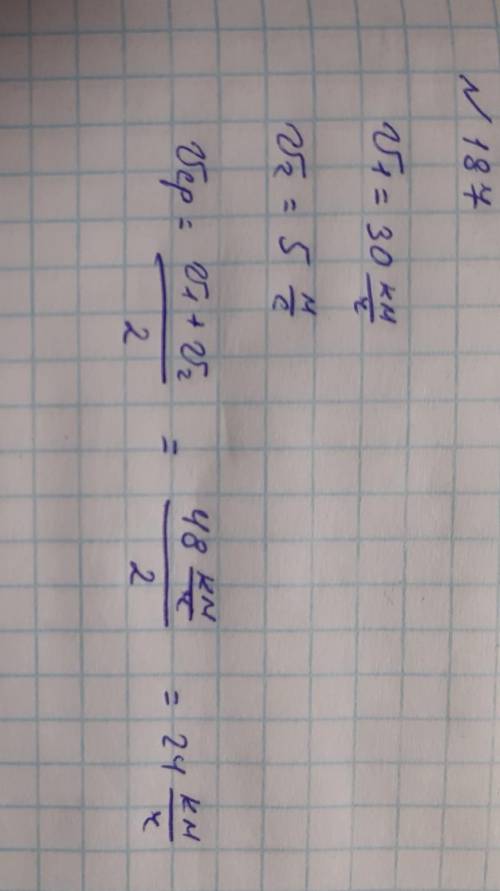 N 187
υ₁ = 30 км/ч
υ₂ = 5 м/с
υср = (υ₁ + υ₂)/2 = (48 км/ч)/2 = 24 км/ч